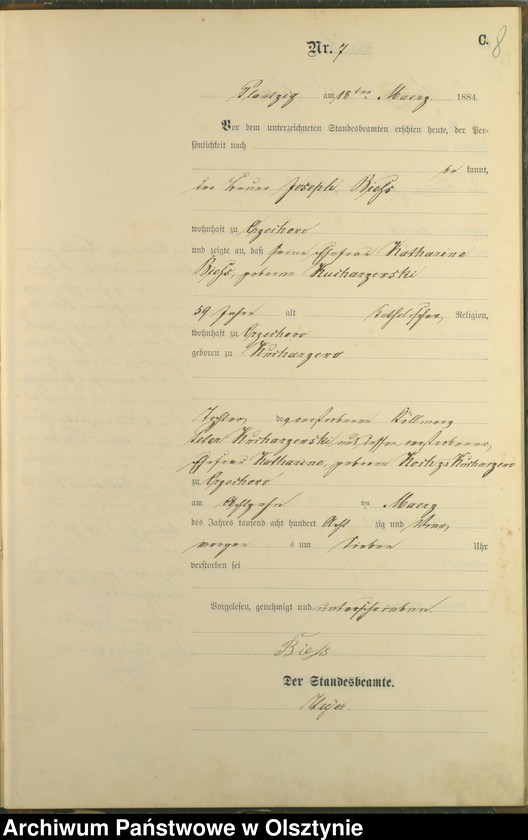 C.
8
Nr. 7
am 18ten Maerz 1884.
Vor dem unterzeichneten Standesbeamten erschien heute, der Per-
sönlichkeit nach
be kannt,
Joseph Biehs
wohnhaft zu
und zeigte an, daß seine Ehefrau Katharine
Biehs, geborene Kucharzewski
59 Jahre alt katholischer Religion,
wohnhaft zu
geboren zu
Tochter des verstorbenen
Peter Kucharzewski und dessen verstorbenen
Ehefrau Katharine, geborene
zu
am Achtzehn ten Maerz
des Jahres tausend acht hundert Acht zig und Vier,
um Sieben Uhr
verstorben sei
Vorgelesen, genehmigt und unterschrieben.
Biehs
Der Standesbeamte.
Archiwum Państwowe w Olsztynie